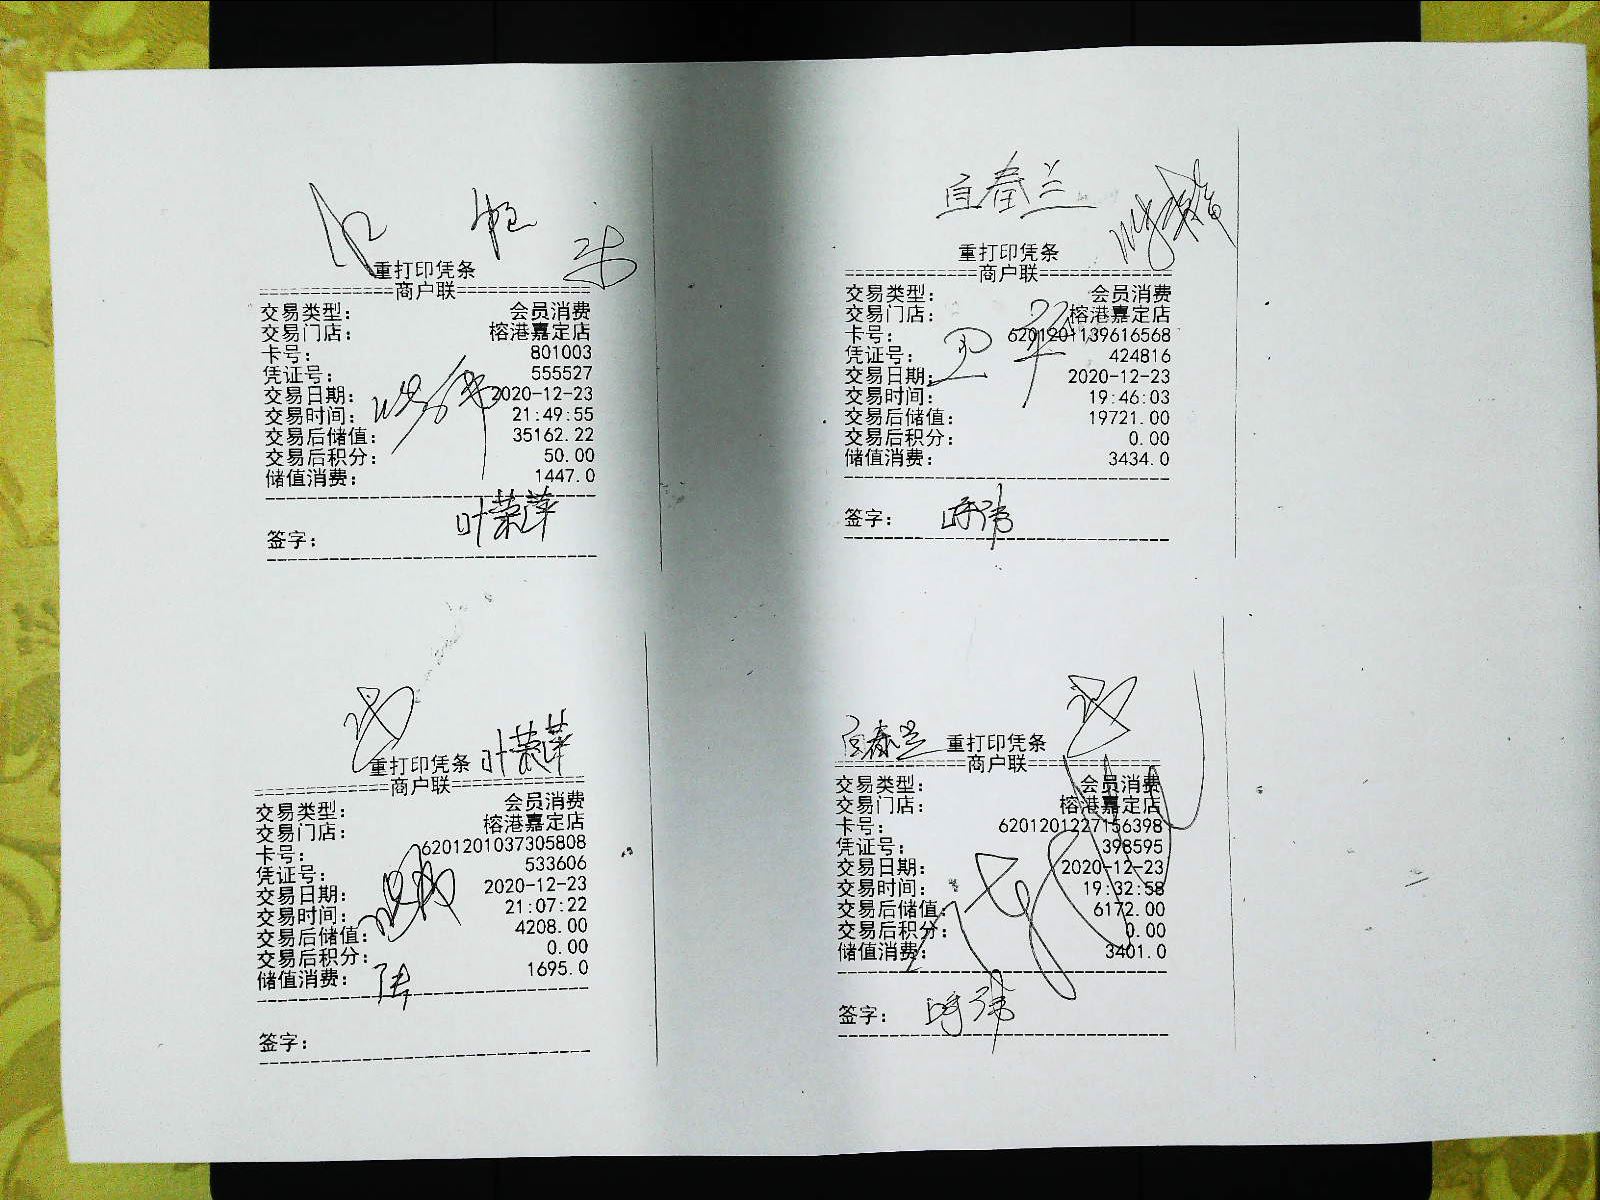 重打印凭条
==============商户联==============
交易类型: 会员消费
交易门店: 榕港嘉定店
卡号: 801003
凭证号: 555527
交易日期: 2020-12-23
交易时间: 21:49:55
交易后储值: 35162.22
交易后积分: 50.00
储值消费: 1447.0
叶荣萍
签字:
宜春兰
重打印凭条
==============商户联==============
交易类型: 会员消费
交易门店: 榕港嘉定店
卡号: 6201201139616568
凭证号: 424816
交易日期: 2020-12-23
交易时间: 19:46:03
交易后储值: 19721.00
交易后积分: 0.00
储值消费: 3434.0
签字:
叶荣萍
重打印凭条
==============商户联==============
交易类型: 会员消费
交易门店: 榕港嘉定店
卡号: 6201201037305808
凭证号: 533606
交易日期: 2020-12-23
交易时间: 21:07:22
交易后储值: 4208.00
交易后积分: 0.00
储值消费: 1695.0
签字:
重打印凭条
==============商户联==============
交易类型: 会员消费
交易门店: 榕港嘉定店
卡号: 6201201227156398
凭证号: 398595
交易日期: 2020-12-23
交易时间: 19:32:58
交易后储值: 6172.00
交易后积分: 0.00
储值消费: 3401.0
签字: